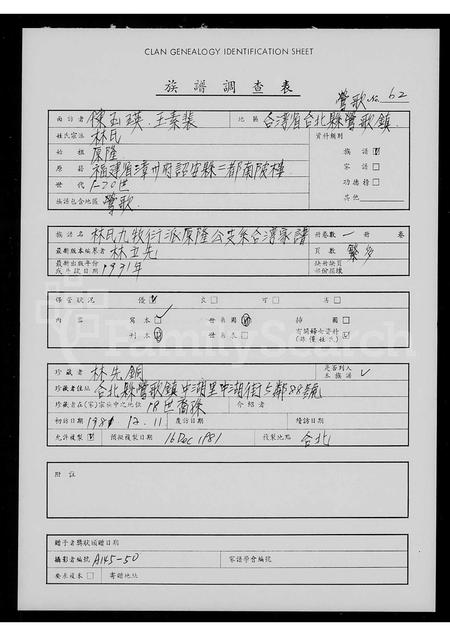 CLAN GENEALOGY IDENTIFICATION SHEET
族譜調查表
鶯歌 No. 62
面訪者 陳玉瑛.王素裴 地區 台灣省台北縣鶯歌鎮.
姓氏宗派 林氏 資料類別
始祖 原隆 族譜
原籍 福建省漳州府詔安縣二都南陂樓 家譜
世代 1-20世 功德榜
族譜包含地區 鶯歌. 其他
族譜名 林氏九牧衍派原隆公支系台灣家譜 冊卷數 一 冊 卷
最新版本編纂者 林立先 頁數 繁多
最新出版年份或手誌日期 1931年 缺冊缺頁部份描樣
保管狀況 優 良 可 否
內容 寫本 世系圖 插圖
刊本 世系表 有關婦女資料(非僅姓氏)
珍藏者 林先銅 是否列入本族譜
珍藏者住址 台北縣鶯歌鎮中湖里中湖街5鄰88號
珍藏者在(家)宗族中之地位 18世裔孫 介紹者
初訪日期 1981 12.11 復訪日期 續訪日期
允許複製 擬複製日期 16 Dec 1981 複製地點 台北
附註
贈予者獎狀頒贈日期
攝影者編號 A145-50 家譜學會編號
要求複本 寄贈地址
FamilySearch